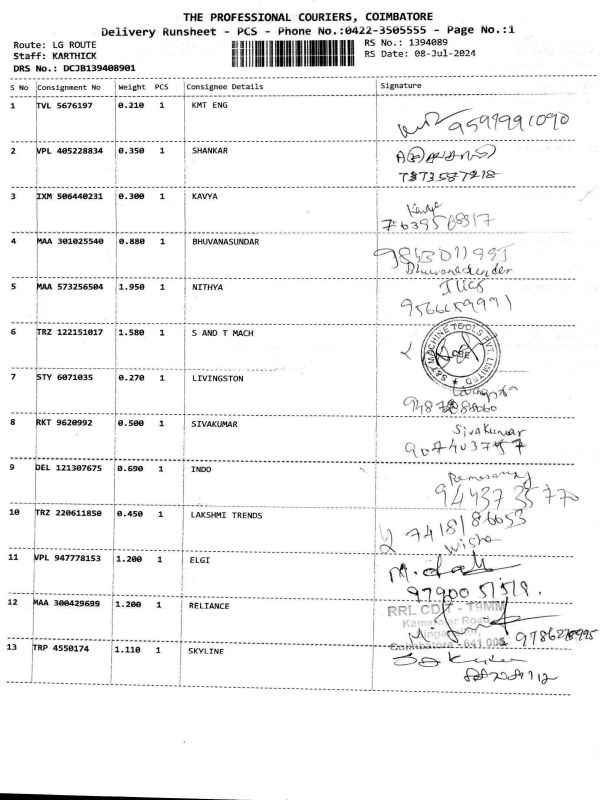 THE PROFESSIONAL COURIERS, COIMBATORE
Delivery Runsheet - PCS - Phone No.:0422-3505555 - Page No.:1
Route: LG ROUTE RS No.: 1394089
Staff: KARTHICK RS Date: 08-Jul-2024
DRS No.: DCJB139408901
S No Consignment No Weight PCS Consignee Details Signature
1 TVL 5676197 0.210 1 KMT ENG
9599991090
2 VPL 405228834 0.350 1 SHANKAR
7373587218
3 IXM 506440231 0.300 1 KAVYA
Kavya
7639568317
4 MAA 301025540 0.880 1 BHUVANASUNDAR
Bhuvanasunder
5 MAA 573256504 1.950 1 NITHYA
9566659991
6 TRZ 122151017 1.580 1 S AND T MACH
S&T MACHINE TOOLS PVT. LIMITED
7 STY 6071035 0.270 1 LIVINGSTON
8 RKT 9620992 0.500 1 SIVAKUMAR
Sivakumar
9 DEL 121307675 0.690 1 INDO
Ramasamy
94437 35770
10 TRZ 220611850 0.450 1 LAKSHMI TRENDS
7418186653
11 VPL 947778153 1.200 1 ELGI
97900 51519.
12 MAA 300429699 1.200 1 RELIANCE
RRL CDIT - T9MM
Kamarajar Road
Coimbatore - 641 005
13 TRP 4550174 1.110 1 SKYLINE